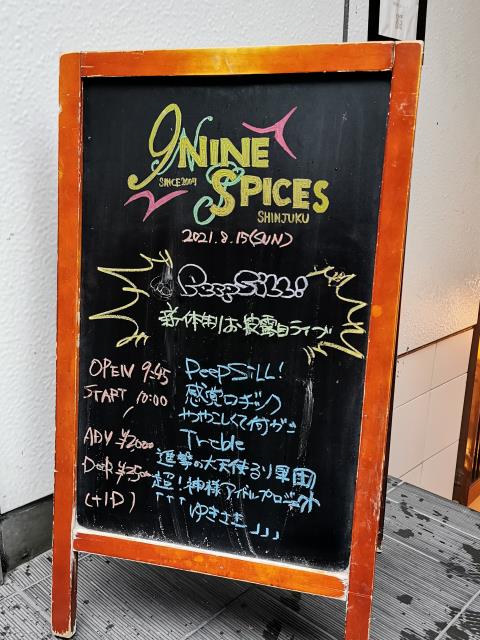 9NINE
SINCE 2009
SPICES
SHINJUKU
2021.8.15(SUN)
PeepSiLL!
新体制お披露目ライブ
OPEN 9:45
START 10:00
ADV ¥2,000
DooR ¥2,500
(+1D)
PeepSiLL!
感覚ロヂック
ややこしくて何がき
Treble
進撃の大天使るり軍団
超!神様アイドルプロジェクト
「「「ゆきさき」」」